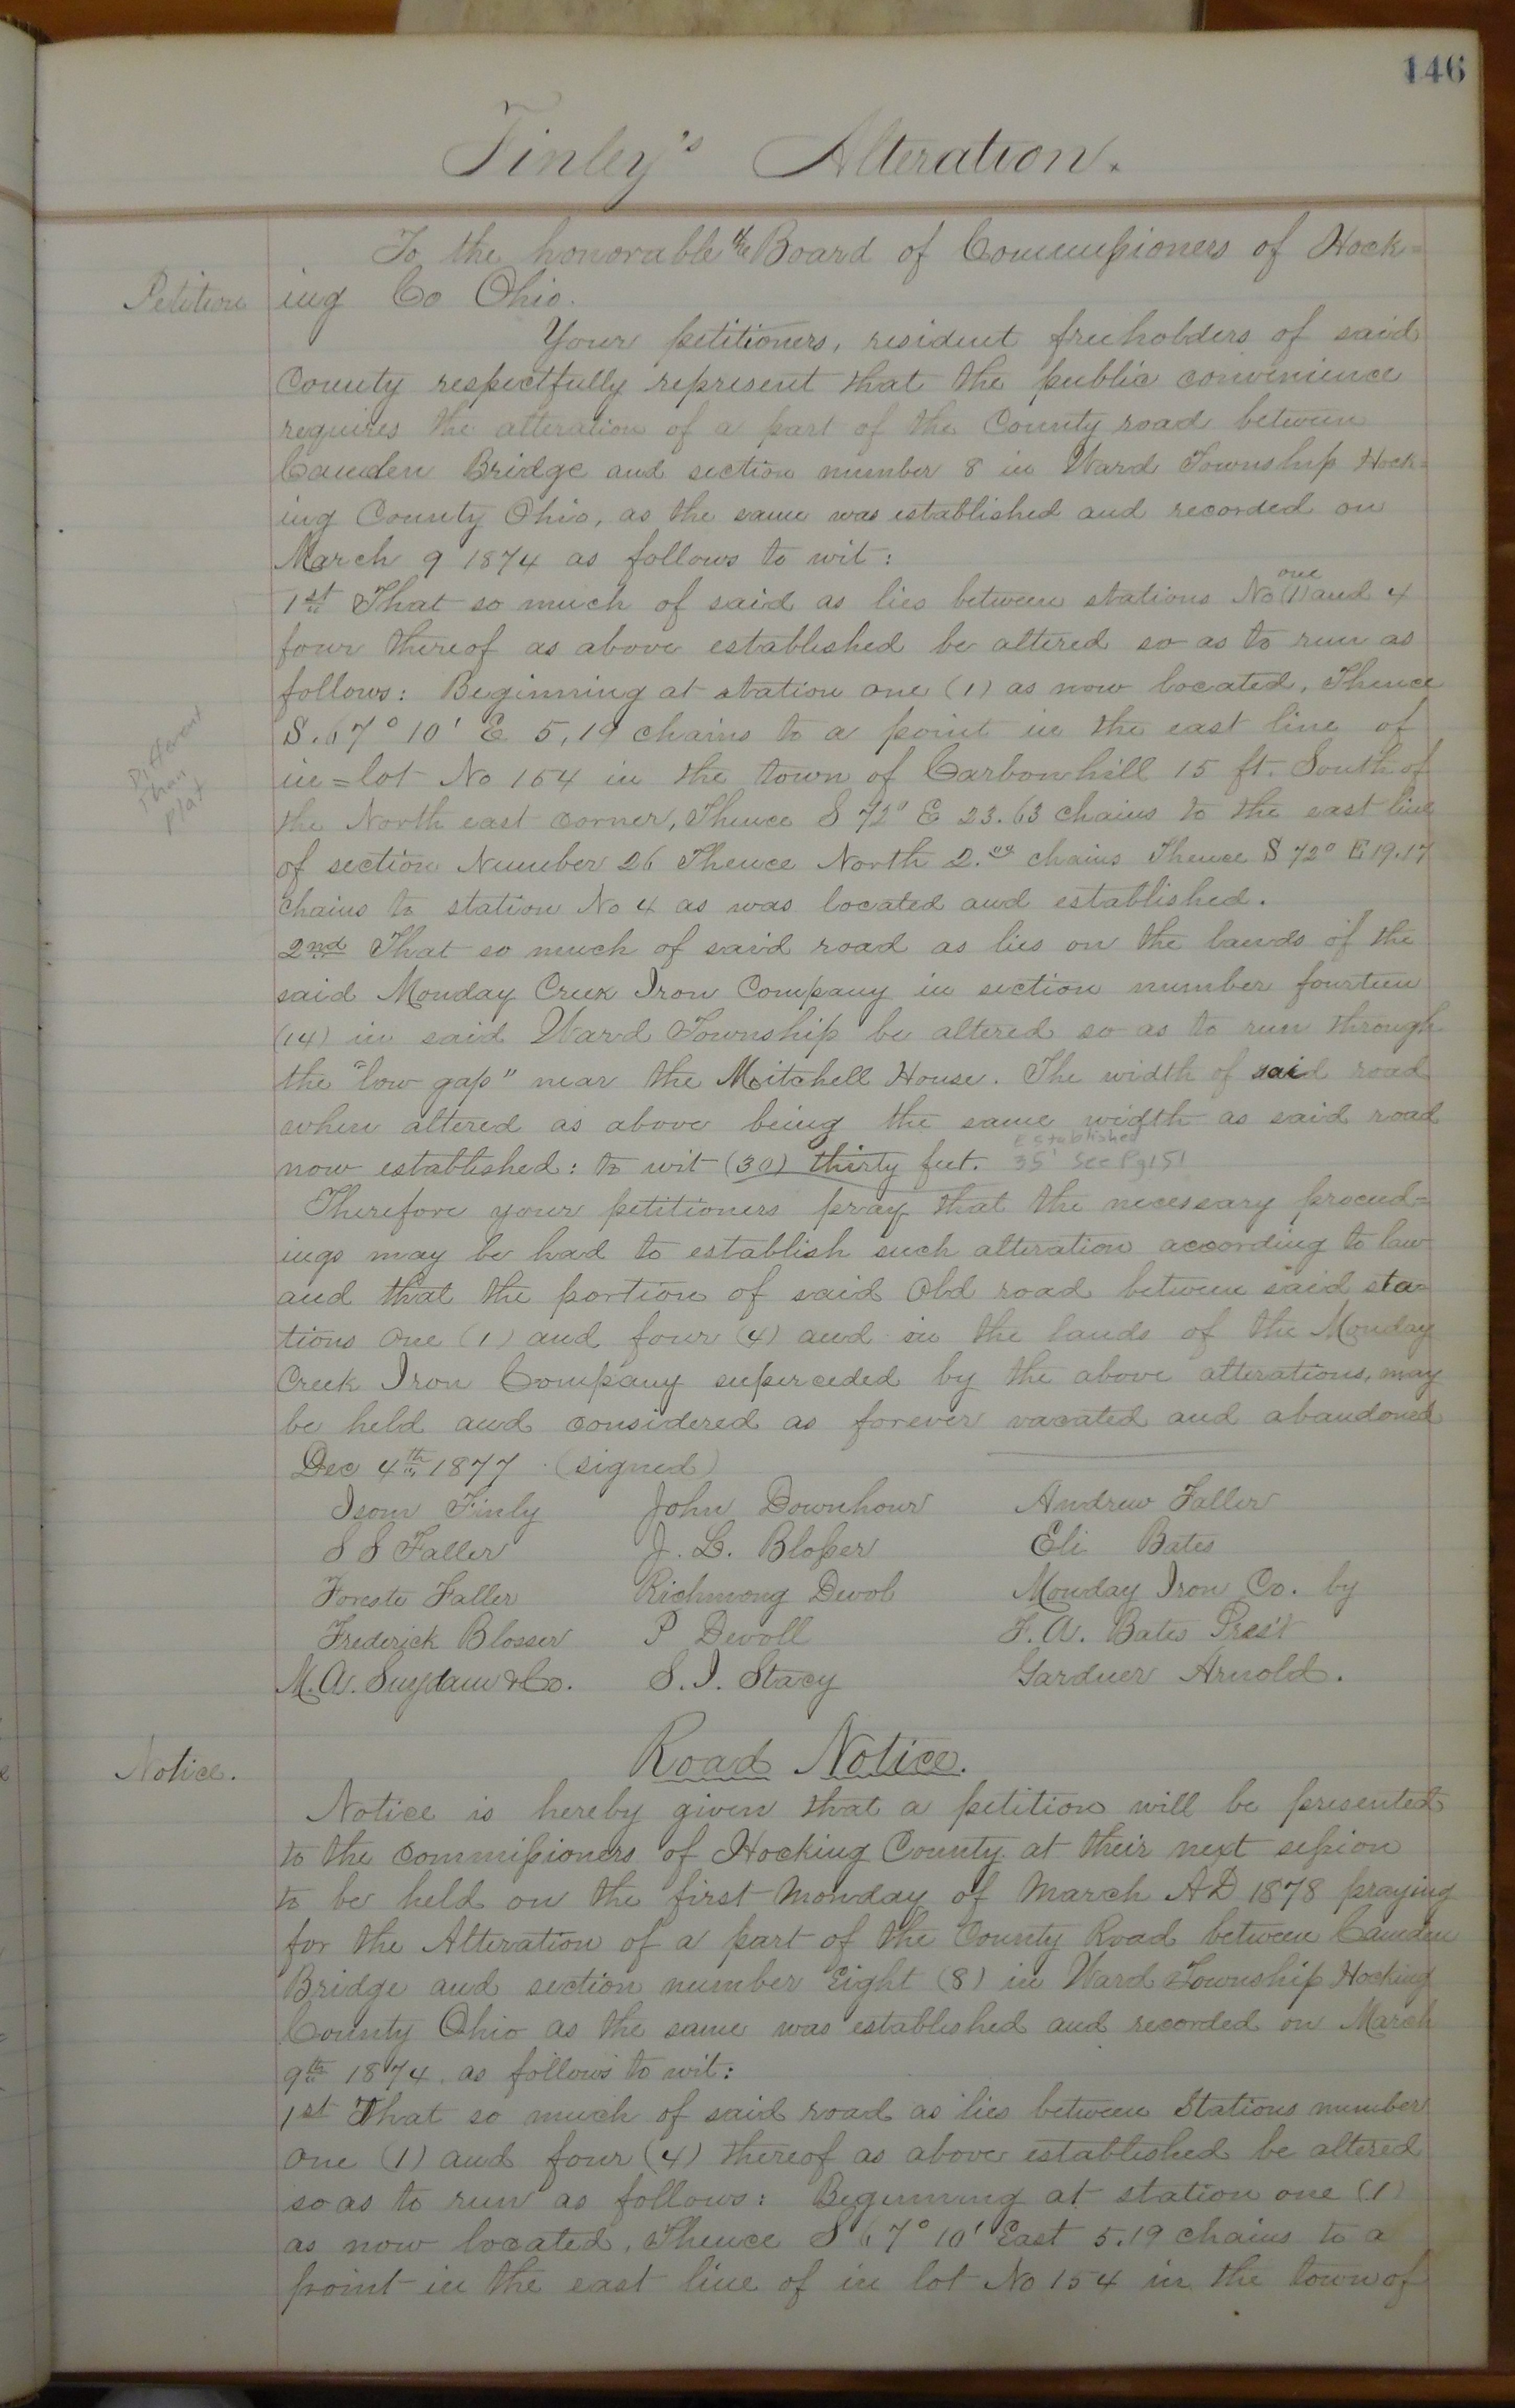 146
Finley's Alteration.
To the honorable the Board of Commissioners of Hock=
Petition
ing Co Ohio.
Your petitioners, resident freeholders of said
County respectfully represent that the public convenience
requires the alteration of a part of the County road between
Camden Bridge and section number 8 in Ward Township Hock=
ing County Ohio, as the same was established and recorded on
March 9 1874 as follows to wit:
1st That so much of said as lies between stations No one (1) and 4
four thereof as above established be altered so as to run as
follows: Beginning at station one (1) as now located, Thence
S. 67° 10' E 5,19 chains to a point in the east line of
in=lot No 154 in the town of Carbonhill 15 ft. South of
Different
than
plat
the North east corner, Thence S 72° E 23.63 chains to the east line
of section Number 26 Thence North 2. chains Thence S 72° E 19.17
chains to station No 4 as was located and established.
2nd That so much of said road as lies on the lands of the
said Monday Creek Iron Company in section number fourteen
(14) in said Ward Township be altered so as to run through
the "low gap" near the Mitchell House. The width of said road
when altered as above being the same width as said road
now established: to wit (30) thirty feet. Established
35' See Pg 151
Therefore your petitioners pray that the necessary proceed=
ings may be had to establish such alteration according to law
and that the portion of said Old road between said sta=
tions One (1) and four (4) and in the lands of the Monday
Creek Iron Company superceded by the above alterations, may
be held and considered as forever vacated and abandoned
Dec 4th 1877 (signed)
Isom Finly John Downhour Andrew Faller
S S Faller J. L. Blosser Eli Bates
Foreste Faller Richmong Devol Monday Iron Co. by
Frederick Blosser P Devoll F. A. Bates Pres't
M. A. Suydam & Co. S. I. Stacy Gardner Arnold.
Road Notice.
Notice.
Notice is hereby given that a petition will be presented
to the commissioners of Hocking County at their next session
to be held on the first Monday of March AD 1878 praying
for the Alteration of a part of the County Road between Camden
Bridge and section number Eight (8) in Ward Township Hocking
County Ohio as the same was established and recorded on March
9th 1874. as follows to wit:
1st That so much of said road as lies between Stations number
One (1) and four (4) thereof as above established be altered
so as to run as follows: Beginning at station one (1)
as now located, Thence S 67° 10' East 5.19 chains to a
point in the east line of in lot No 154 in the town of